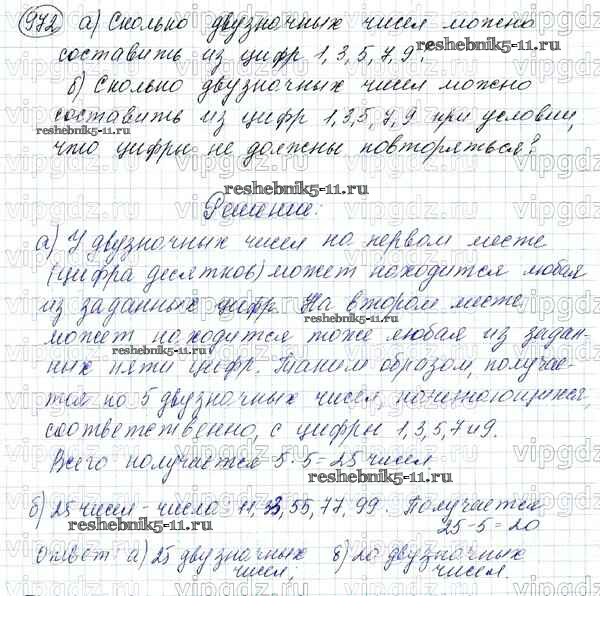 972 а) Сколько двузначных чисел можно
составить из цифр 1, 3, 5, 7, 9?
б) Сколько двузначных чисел можно
составить из цифр 1, 3, 5, 7, 9 при условии,
что цифры не должны повторяться?
Решение:
а) У двузначных чисел на первом месте
(цифра десятков) может находится любая
из заданных цифр. На втором месте
может находится тоже любая из задан-
ных пяти цифр. Таким образом, получае-
тся по 5 двузначных чисел, начинающихся,
соответственно, с цифры 1, 3, 5, 7 и 9.
Всего получается 5·5=25 чисел
б) 25 чисел - числа 11, 33, 55, 77, 99. Получается
25-5=20
Ответ а) 25 двузначных б) 20 двузначных
чисел; чисел.
reshebnik5-11.ru
reshebnik5-11.ru
reshebnik5-11.ru
reshebnik5-11.ru
reshebnik5-11.ru
reshebnik5-11.ru
reshebnik5-11.ru
vipgdz.ru